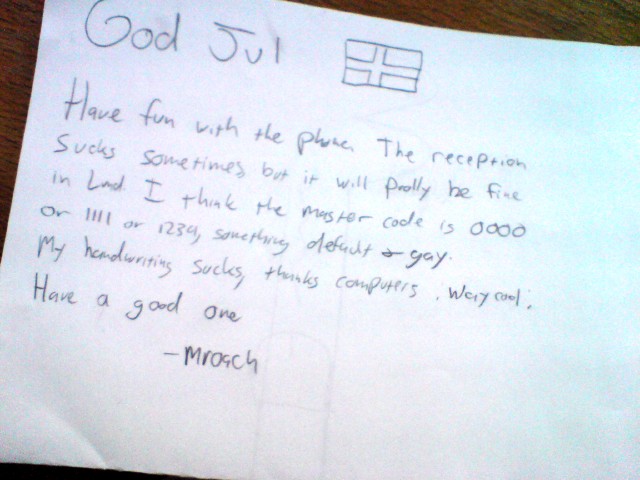 God Jul
Have fun with the phone. The reception
Sucks sometimes, but it will prolly be fine
in Lnd. I think the master code is 0000
or 1111 or 1234, something default & gay.
My handwriting sucks, thanks computers. Way cool.
Have a good one
- Mroach